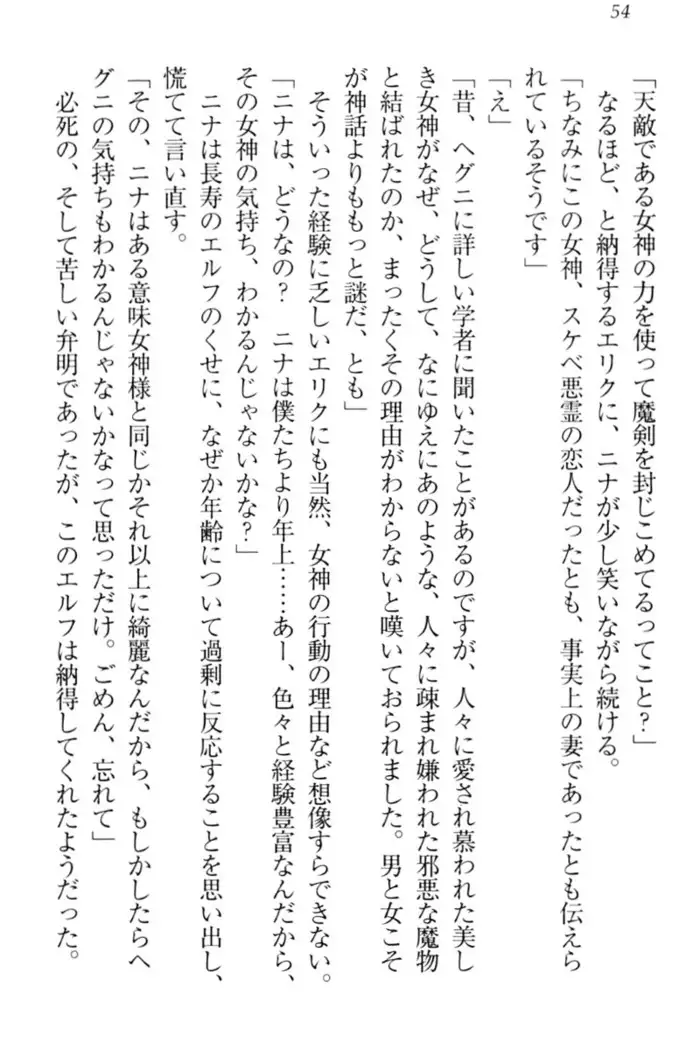 54
「天敵である女神の力を使って魔剣を封じこめてるってこと？」
なるほど、と納得するエリクに、ニナが少し笑いながら続ける。
「ちなみにこの女神、スケベ悪霊の恋人だったとも、事実上の妻であったとも伝えら
れているそうです」
「え」
「昔、ヘグニに詳しい学者に聞いたことがあるのですが、人々に愛され慕われた美し
き女神がなぜ、どうして、なにゆえにあのような、人々に疎まれ嫌われた邪悪な魔物
と結ばれたのか、まったくその理由がわからないと嘆いておられました。男と女こそ
が神話よりももっと謎だ、とも」
そういった経験に乏しいエリクにも当然、女神の行動の理由など想像すらできない。
「ニナは、どうなの？　ニナは僕たちより年上……あー、色々と経験豊富なんだから、
その女神の気持ち、わかるんじゃないかな？」
ニナは長寿のエルフのくせに、なぜか年齢について過剰に反応することを思い出し、
慌てて言い直す。
「その、ニナはある意味女神様と同じかそれ以上に綺麗なんだから、もしかしたらへ
グニの気持ちもわかるんじゃないかなって思っただけ。ごめん、忘れて」
必死の、そして苦しい弁明であったが、このエルフは納得してくれたようだった。